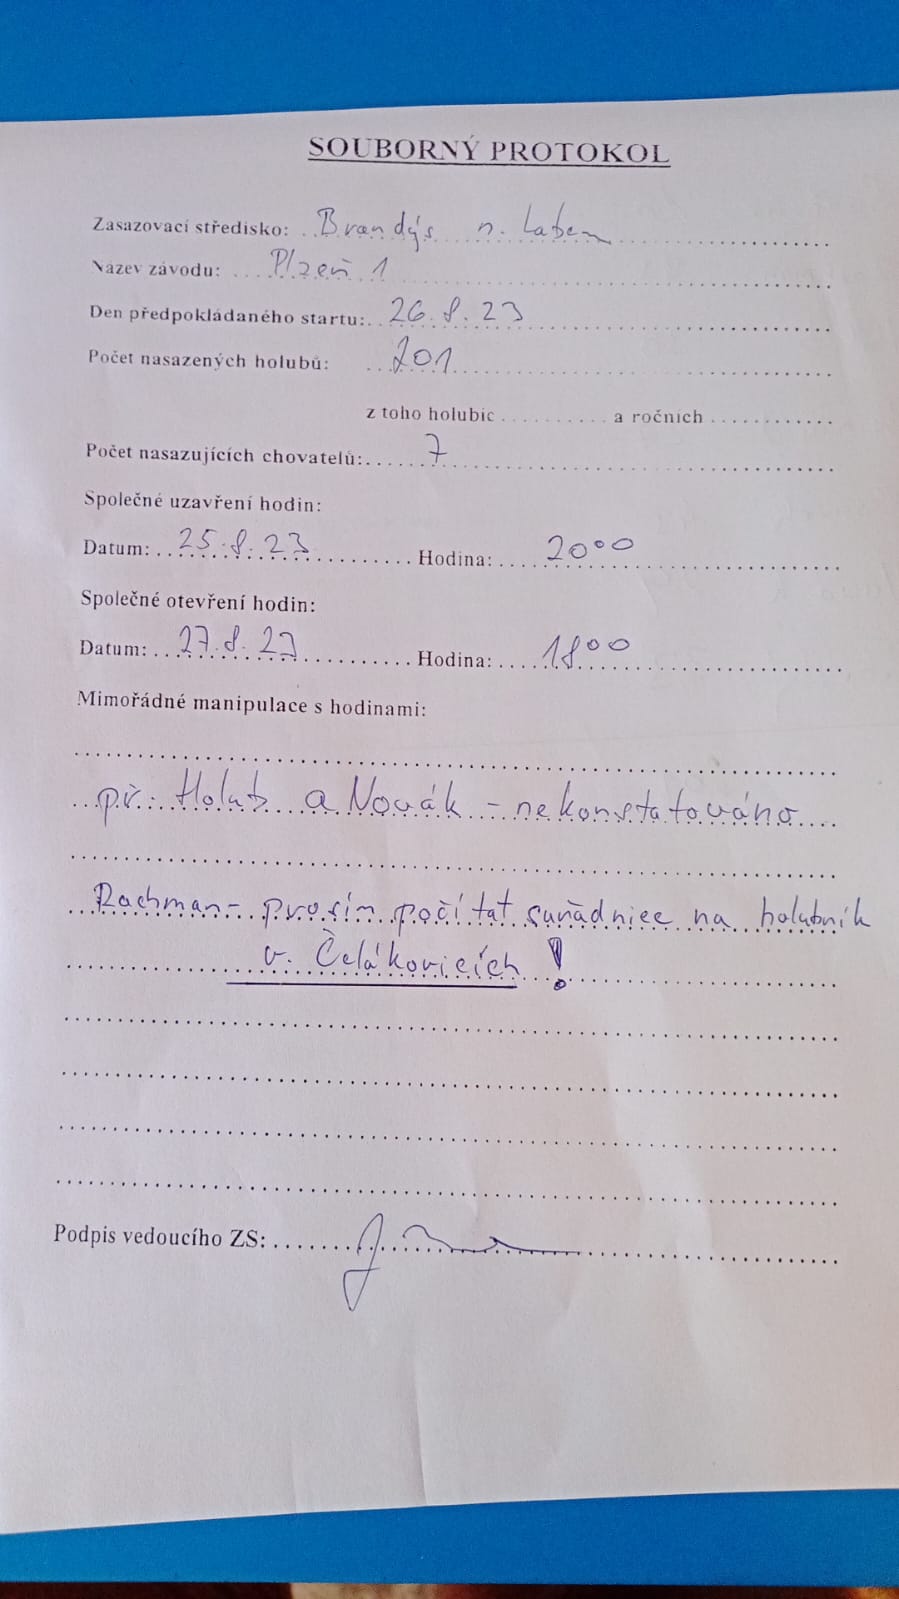 SOUBORNÝ PROTOKOL
Zasazovací středisko: Brandýs n. Labem
Název závodu: Plzeň 1
Den předpokládaného startu: 26.8.23
Počet nasazených holubů: 201
z toho holubic .......... a ročních ............
Počet nasazujících chovatelů: 7
Společné uzavření hodin:
Datum: 25.8.23 Hodina: 20⁰⁰
Společné otevření hodin:
Datum: 27.8.23 Hodina: 18⁰⁰
Mimořádné manipulace s hodinami:
př. Holub a Novák - nekonstatováno
Rachman - prosím počítat suřadnice na holubník
v Čelákovicích !
Podpis vedoucího ZS: